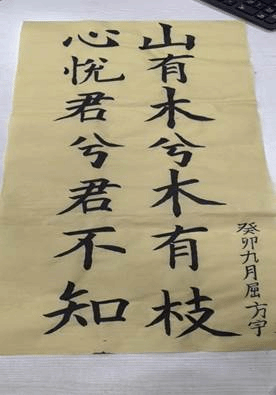 山有木兮木有枝
心悦君兮君不知
癸卯九月屈方宇